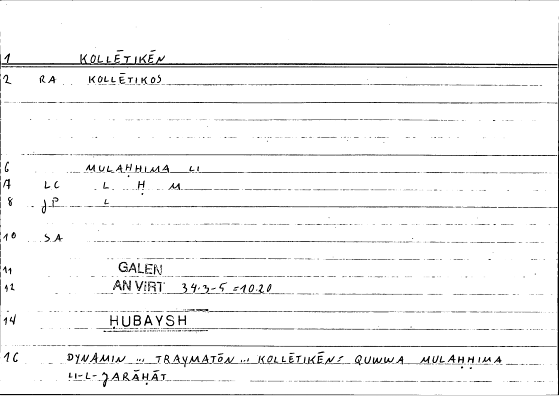 1 KOLLĒTIKĒN
2 RA KOLLĒTIKOS
6 MULAḤḤIMA LI
7 LC L Ḥ M
8 JP L
10 SA
11 GALEN
12 AN VIRT 34.3-5 = 10.20
14 ḤUBAYSH
16 DYNAMIN ... TRAYMATŌN ... KOLLĒTIKĒN: QUWWA MULAḤḤIMA
LI-L-JARĀḤĀT